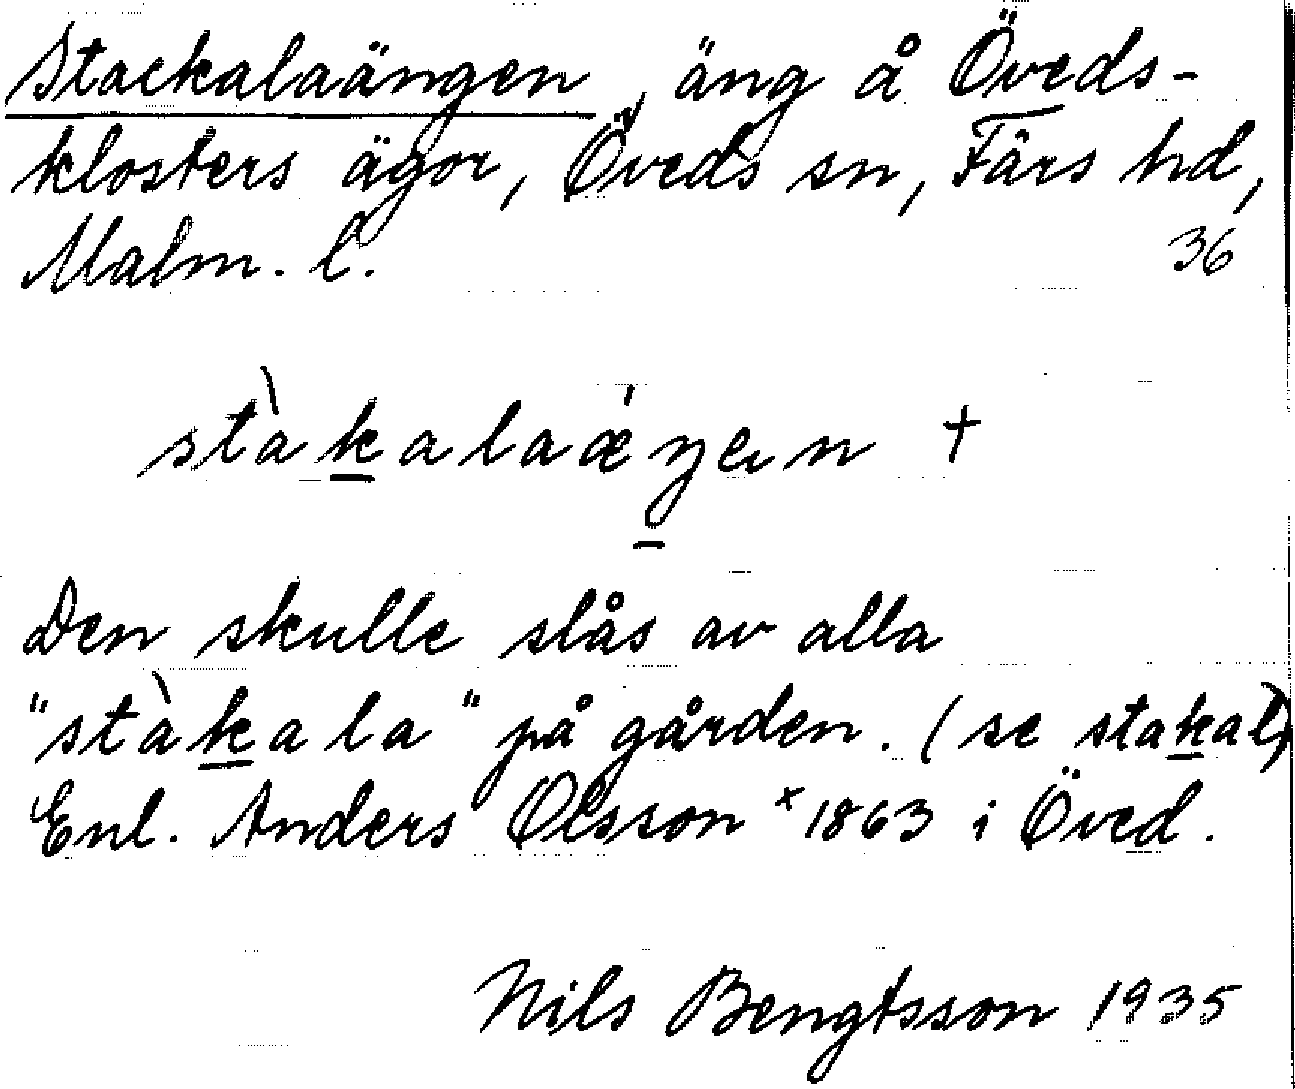 Stackalaängen, äng å Öveds-
klosters ägor, Öveds sn, Färs hd,
Malm. l. 36
stàkalaǽŋen †
Den skulle slås av alla
"stàkala" på gården. (se stakal)
Enl. Anders Olsson × 1863 i Öved.
Nils Bengtsson 1935